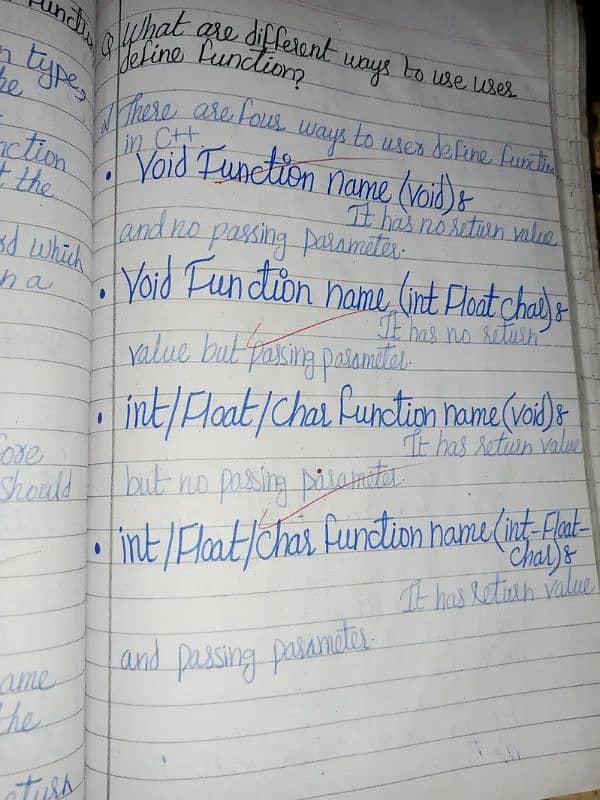 Functi
n type,
he
nction
t the
rd which
n a
fore
Should
ame
the
eturn
Q What are different ways to use user
define function?
a) There are four ways to user define function
in C++
• Void Function name (void)&
It has no return value
and no passing parameter.
• Void Function name (int Float char)&
It has no return
value but passing parameter.
• int/Float/Char function name (void)&
It has return value
but no passing parameter.
• int/Float/Char function name (int-Float-
Char)&
It has return value
and passing parameter.